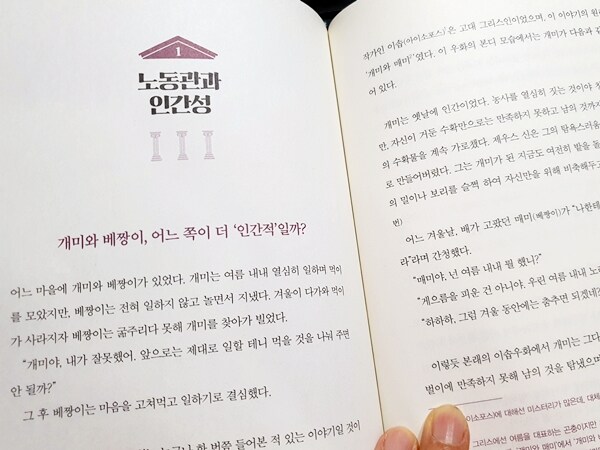 1
노동관과
인간성
개미와 베짱이, 어느 쪽이 더 '인간적'일까?
어느 마을에 개미와 베짱이가 있었다. 개미는 여름 내내 열심히 일하며 먹이
를 모았지만, 베짱이는 전혀 일하지 않고 놀면서 지냈다. 겨울이 다가와 먹이
가 사라지자 베짱이는 굶주리다 못해 개미를 찾아가 빌었다.
"개미야, 내가 잘못했어. 앞으로는 제대로 일할 테니 먹을 것을 나눠 주면
안 될까?"
그 후 베짱이는 마음을 고쳐먹고 일하기로 결심했다.
한 번쯤 들어본 적 있는 이야기일 것이
작가인 이솝(아이소포스)은 고대 그리스인이었으며, 이 이야기의 원
'개미와 매미'였다. 이 우화의 본디 모습에서는 개미가 다음과 같
어 있다.
개미는 옛날에 인간이었다. 농사를 열심히 짓는 것이야
만, 자신이 거둔 수확만으로는 만족하지 못하고 남의 것까지
의 수확물을 계속 가로챘다. 제우스 신은 그의 탐욕스러움
로 만들어버렸다. 그는 개미가 된 지금도 여전히 밭을 돌
의 밀이나 보리를 슬쩍 하여 자신만을 위해 비축해두고
번)
어느 겨울날, 배가 고팠던 매미(베짱이)가 "나한테
라"라며 간청했다.
"매미야, 넌 여름 내내 뭘 했니?"
"게으름을 피운 건 아니야. 우린 여름 내내 노래
"하하하, 그럼 겨울 동안에는 춤추면 되겠네
이렇듯 본래의 이솝우화에서 개미는 그다
벌이에 만족하지 못해 남의 것을 탐냈으며
(아이소포스)에 대해선 미스터리가 많은데, 대체
그리스에선 여름을 대표하는 곤충이지만
'개미와 매미'에서 '개미와 베